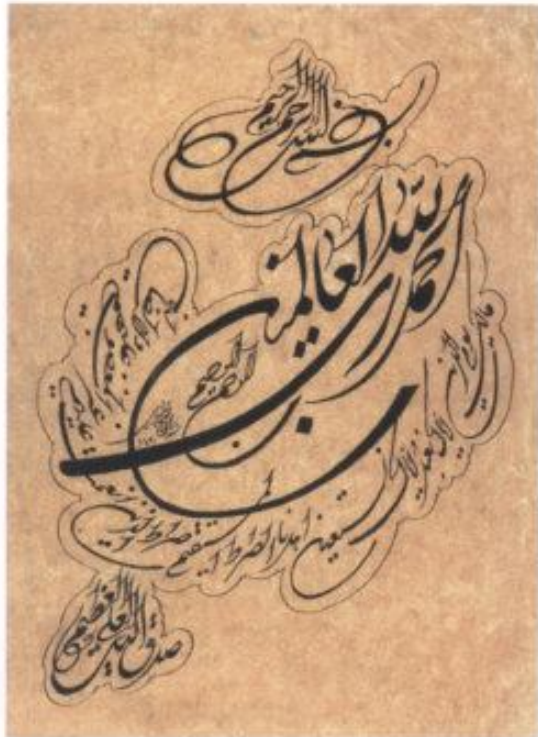 بسم الله الرحمن الرحیم
الحمد لله رب العالمین
الرحمن الرحیم
مالک یوم الدین
ایاک نعبد و ایاک نستعین
اهدنا الصراط المستقیم
صراط الذین انعمت علیهم
غیر المغضوب علیهم
ولا الضالین
صدق الله العلی العظیم